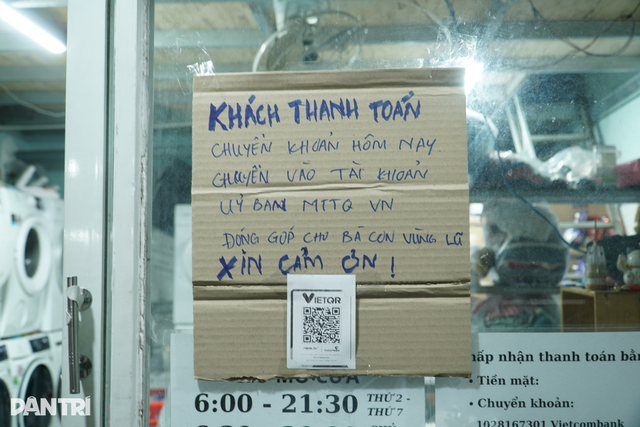 KHÁCH THANH TOÁN
CHUYỂN KHOẢN HÔM NAY.
CHUYỂN VÀO TÀI KHOẢN
UỶ BAN MTTQ VN
ĐÓNG GÓP CHO BÀ CON VÙNG LŨ
XIN CẢM ƠN!
VIETQR
6:00 - 21:30 THỨ 2 -
THỨ 7
hấp nhận thanh toán bằ
• Tiền mặt:
• Chuyển khoản:
1028167301 Vietcombank
DÂN TRÍ